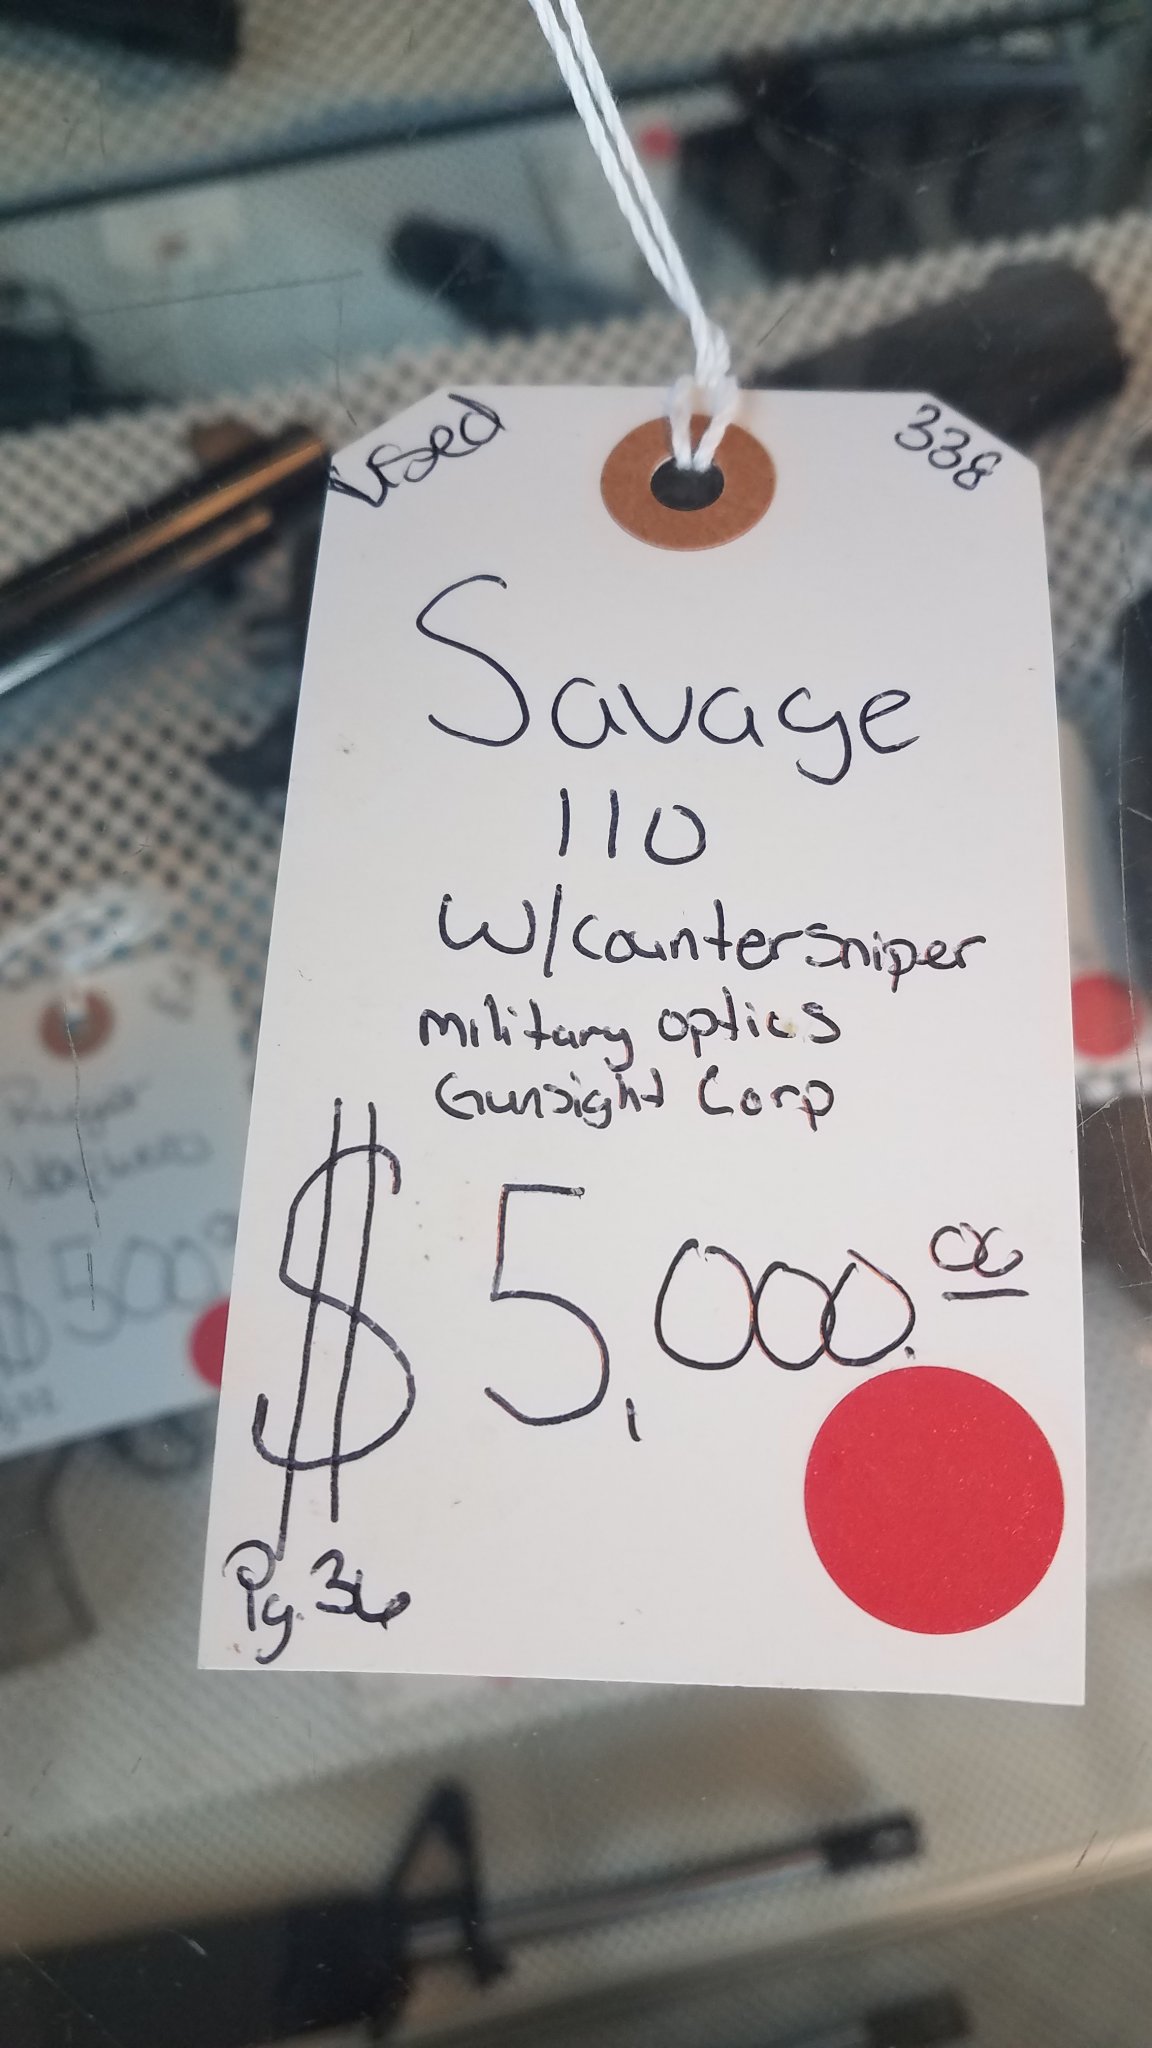 Used
338
Savage
110
W/Countersniper
military optics
Gunsight Corp
$5,000.00
Pg. 36
Ruger
$500